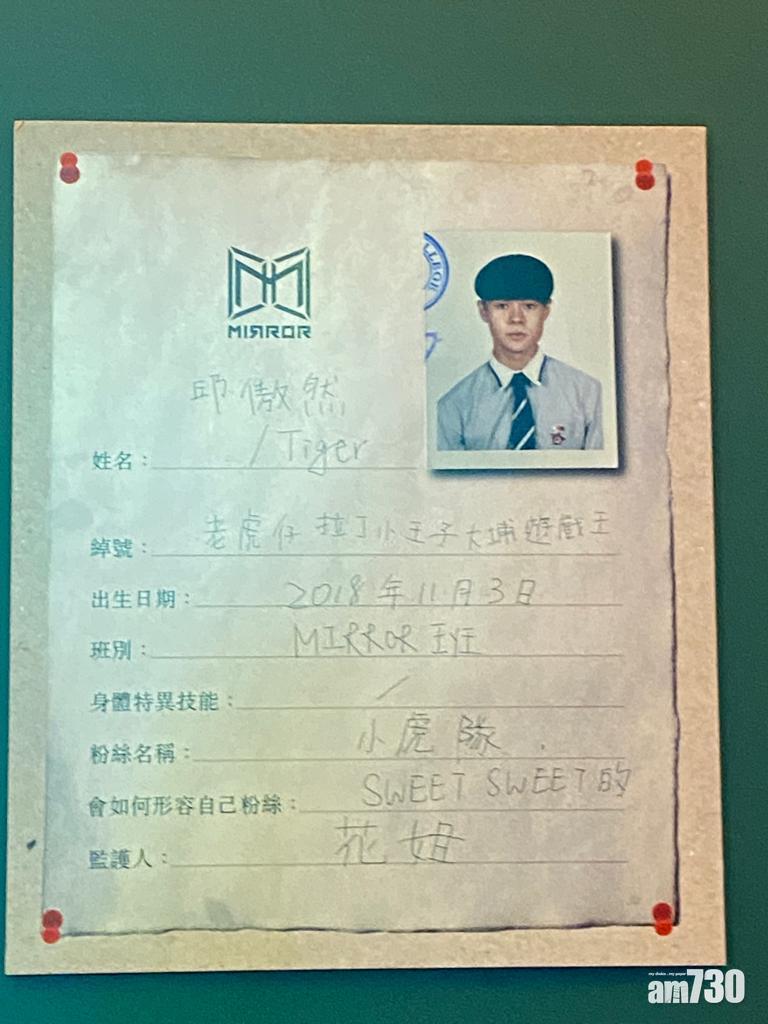 MIRROR
邱傲然
姓名： / Tiger
綽號： 老虎仔 拉丁小王子 大埔遊戲王
出生日期： 2018年11月3日
班別： MIRROR班
身體特異技能： /
粉絲名稱： 小虎隊.
會如何形容自己粉絲： SWEET SWEET的
監護人： 花姐
my choice . my paper
am730